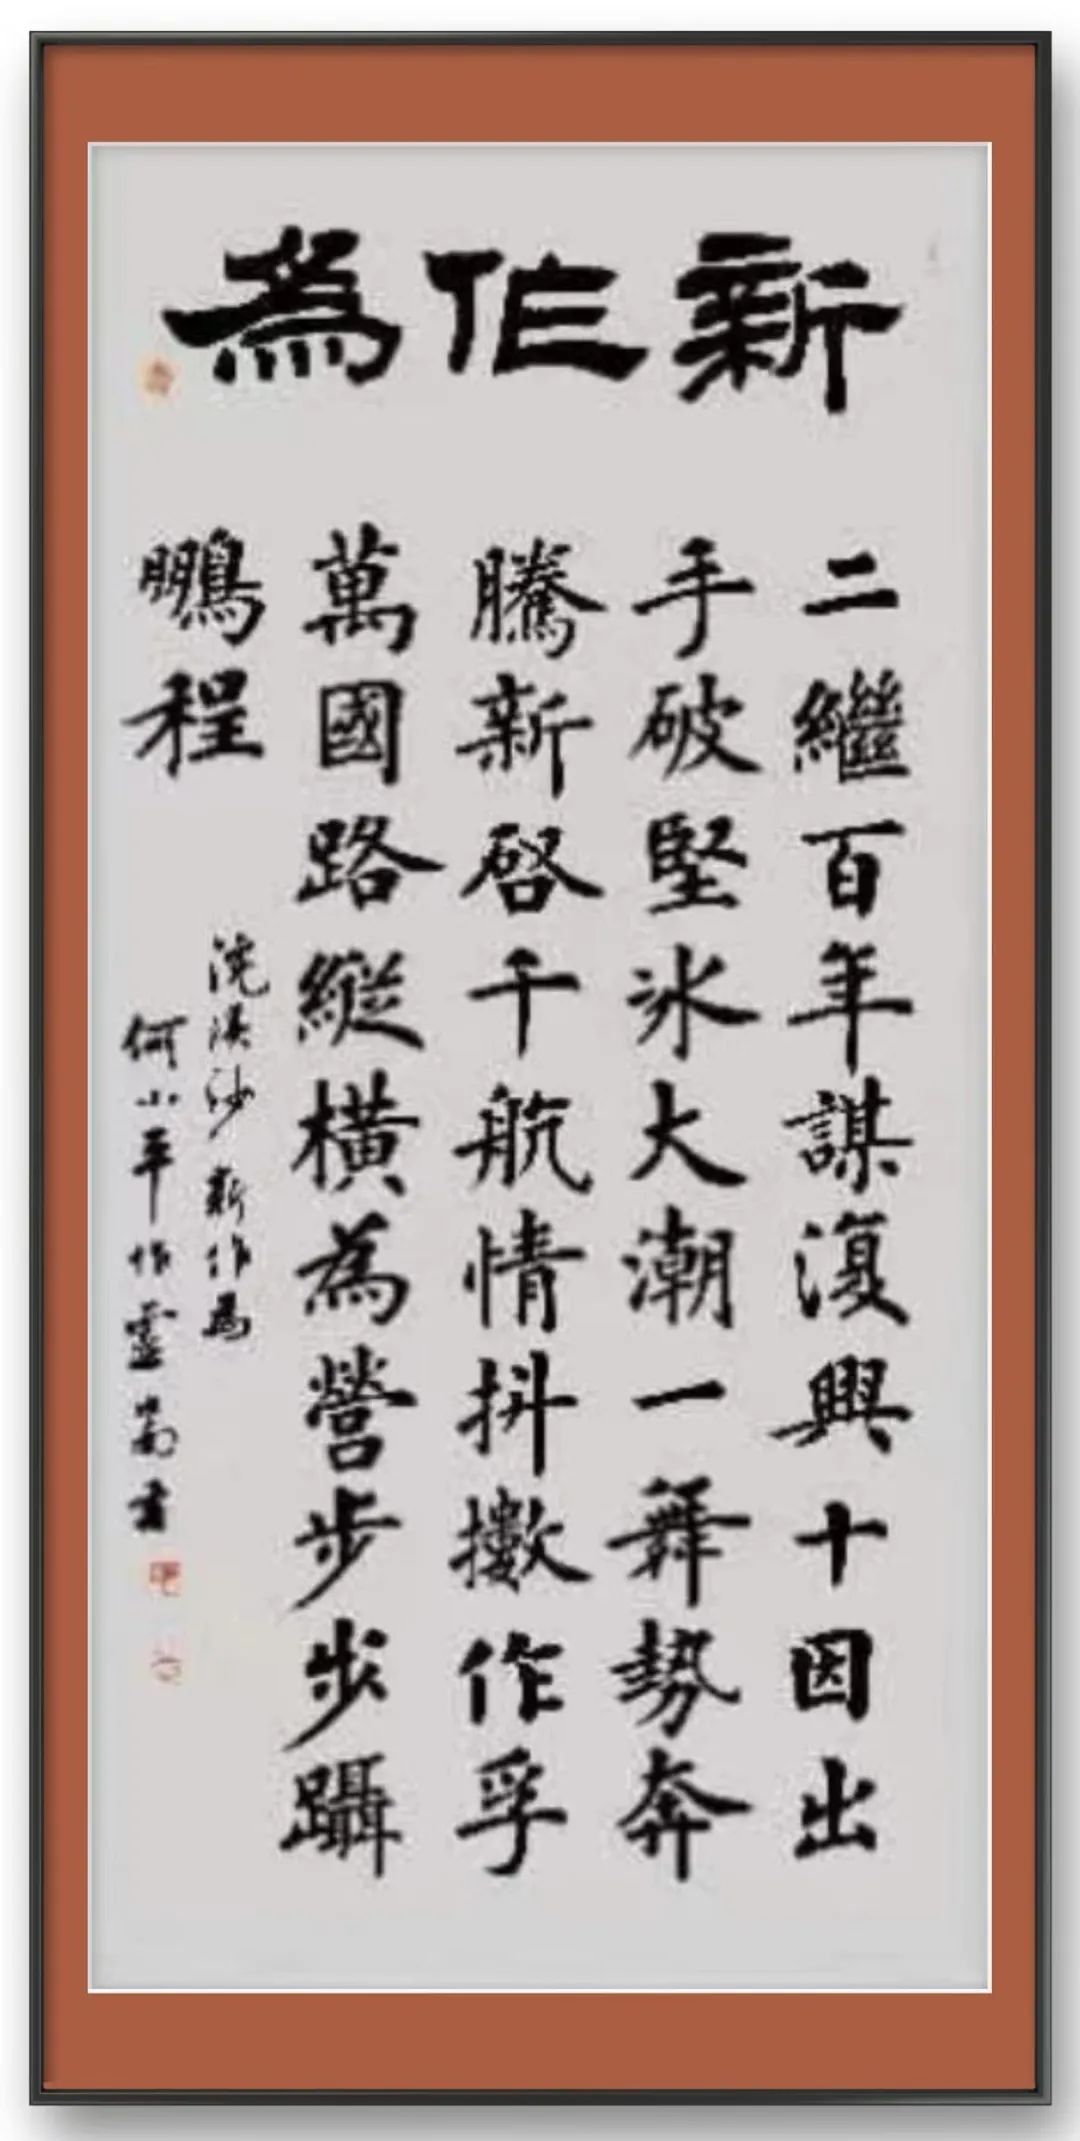 新作為
二繼百年謀復興十因出
手破堅冰大潮一舞勢奔
騰新啓千航情抖擻作孚
萬國路縱橫為營步步躡
鵬程
浣溪沙新作為
何小平作靈芻書